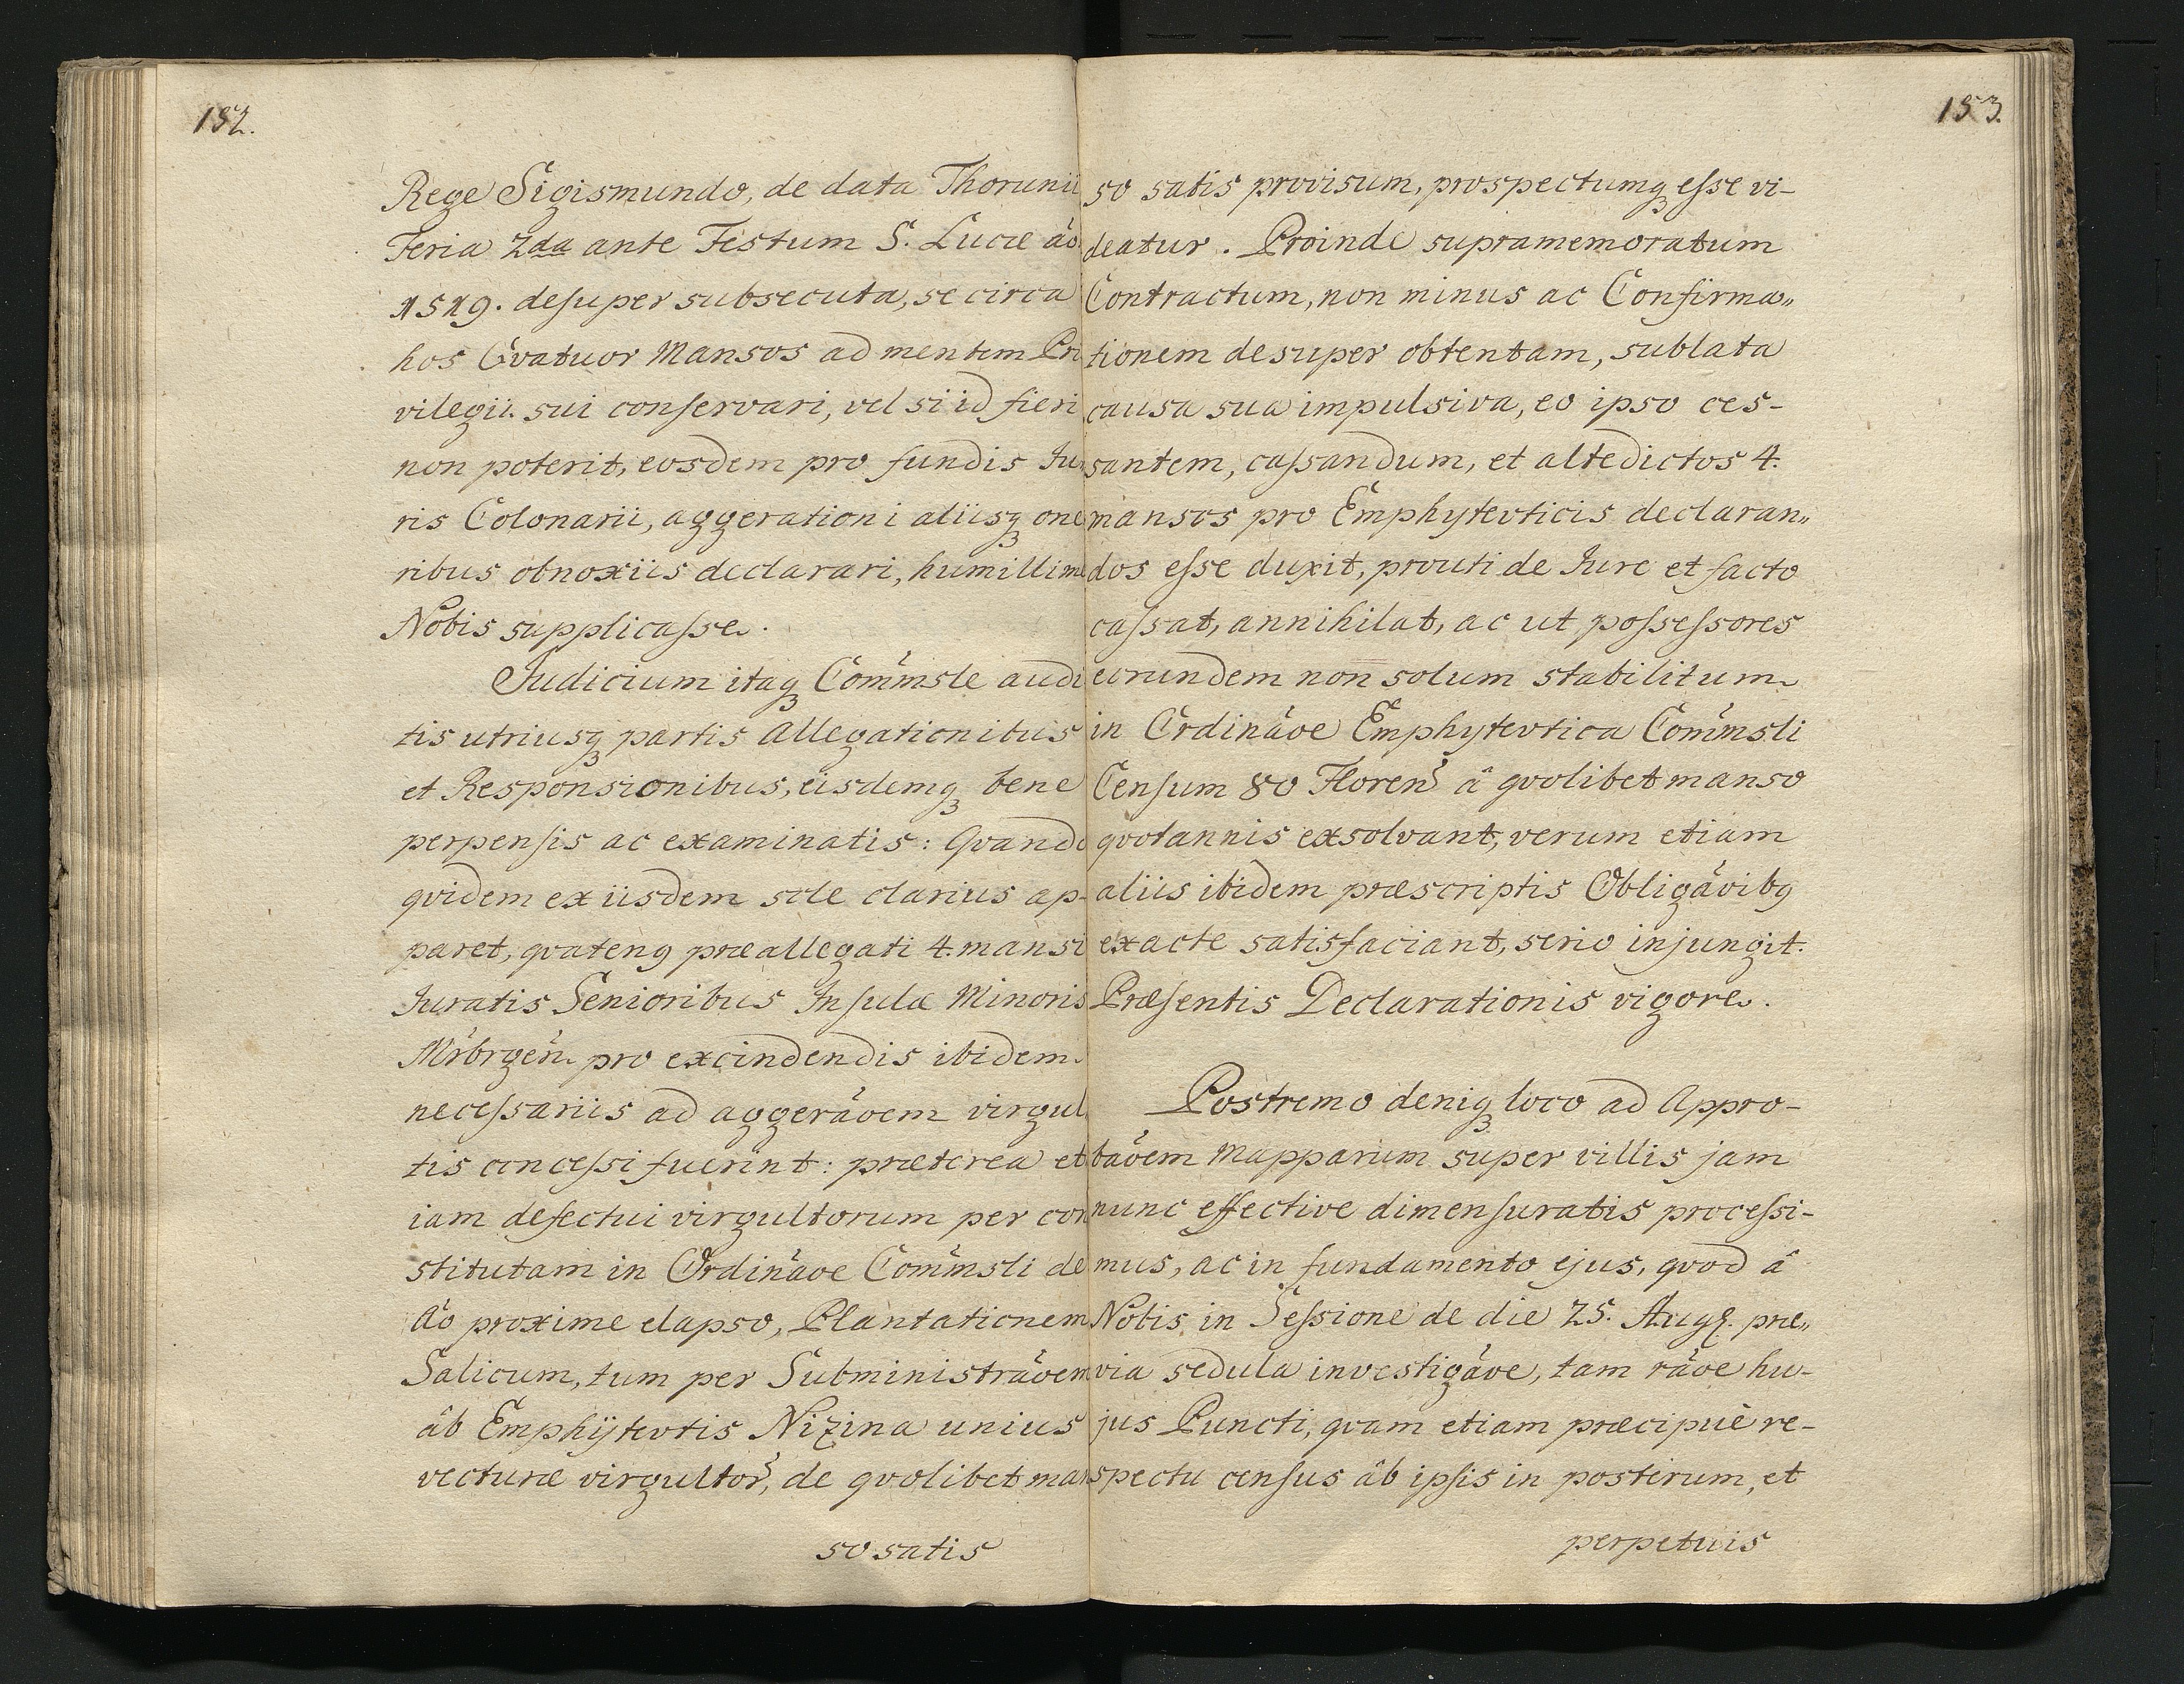 152.
Rege Sigismundo, de data Thorunii
Feria 2da ante Festum S. Luciæ ao.
1519. desuper subsecuta, se circa
hos Qvatuor Mansos ad mentem Pri
vilegii sui conservari, vel si id fieri
non poterit, eosdem pro fundis Ju
ris Colonarii, aggerationi aliisq one
ribus obnoxiis declarari, humillime
Nobis supplicasse.
Judicium itaq Commsle audi
tis utriusq partis Allegationibus
et Responsionibus, eisdemq bene
perpensis ac examinatis: Qvando
qvidem ex iisdem sole clarius ap-
paret, qvateng præallegati 4. mansi
Juratis Senioribus Insulæ Minoris
Mrbrgen. pro excindendis ibidem
necessariis ad aggeräoem virgul
tis concessi fuerint: præterea et
iam defectui virgultorum per con
stitutam in Ordinäoe Commsli de
Ao proxime elapso, Plantationem
Salicum, tum per Subministräoem
âb Emphÿtevtis Nizina unius
vecturæ virgultor, de qvolibet man
so satis
153.
so satis provisum, prospectumq esse vi-
deatur. Proinde supramemoratum
Contractum, non minus ac Confirma„
tionem desuper obtentam, sublata
causa sua impulsiva, eo ipso ces-
santem, cassandum, et altedictos 4.
mansos pro Emphytevticis declaran„
dos esse duxit, prouti de Jure et facto
cassat, annihilat, ac ut possessores
eorundem non solum stabilitum
in Ordinäoe Emphytevtica Commsli
Censum 80 Floren â qvolibet manso
qvotannis exsolvant, verum etiam
aliis ibidem præscriptis Obligäoibg
exacte satisfaciant, serio injungit.
Præsentis Declarationis vigore.
Postremo deniq loco ad Appro-
bäoem Mapparum super villis jam
nunc effective dimensuratis processi-
mus, ac in fundamento ejus, qvod â
Nobis in Sessione de die 25. Augg. præ„
via sedula investigäoe, tam räoe hu-
jus Puncti, qvam etiam præcipuè re-
spectu census âb ipsis in posterum, et
perpetuis